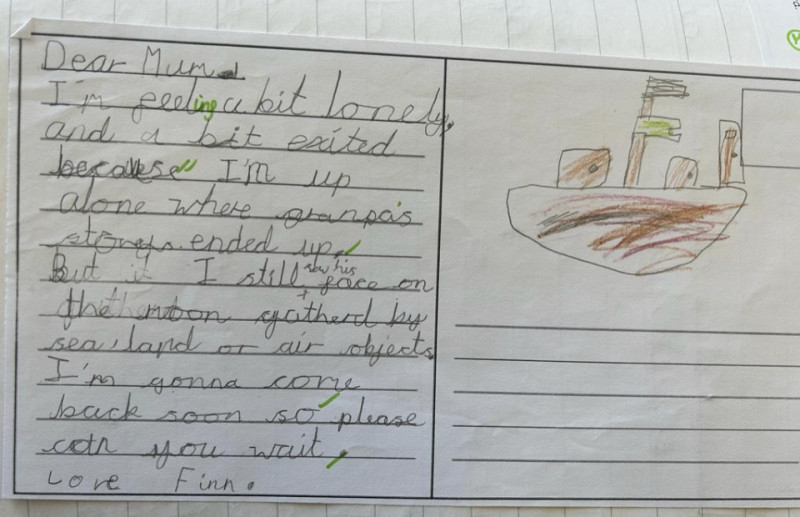 Dear Mum
I'm feeling a bit lonely,
and a bit exited
because I'm up
alone where granpa's
storys ended up.
But it I still saw his face on
the moon gatherd by
sea, land or air objects.
I'm gonna come
back soon so please
can you wait.
Love Finn.